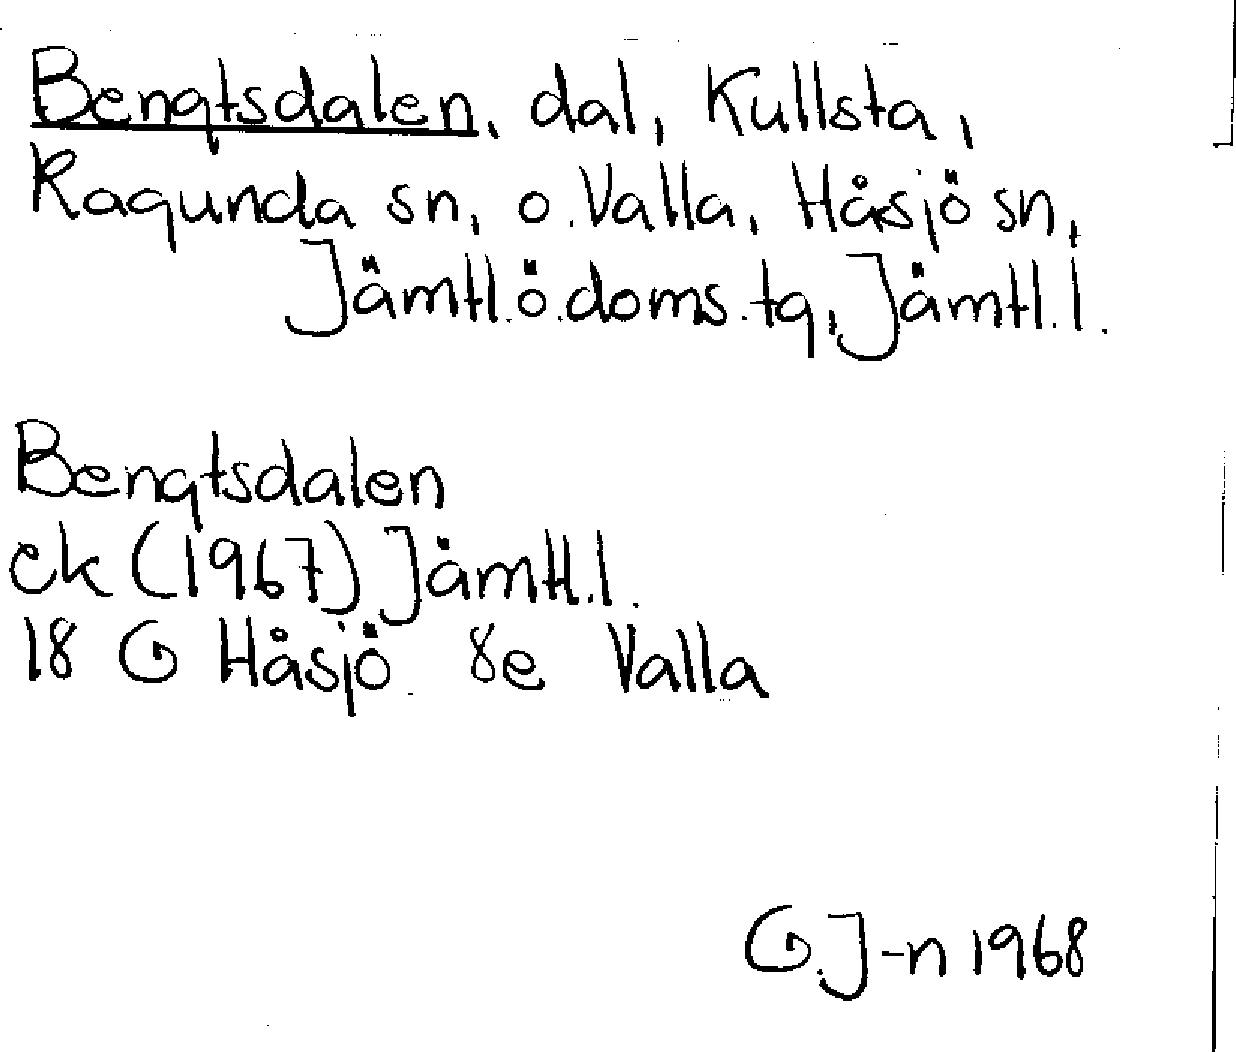 Bengtsdalen, dal, Kullsta,
Ragunda sn, o. Valla, Håsjö sn,
Jämtl.ö.doms.tg, Jämtl.l.
Bengtsdalen
ek (1967) Jämtl.l.
18 G Håsjö 8e Valla
G.J-n 1968